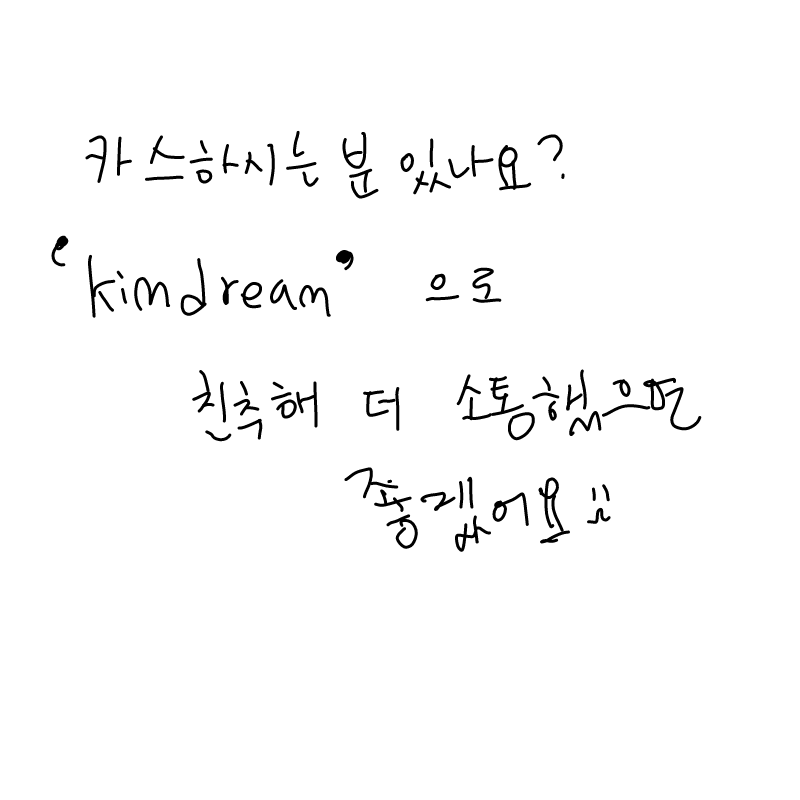 카스하시는 분 있나요?
'kimdream' 으로
친추해 더 소통했으면
좋겠어요!!